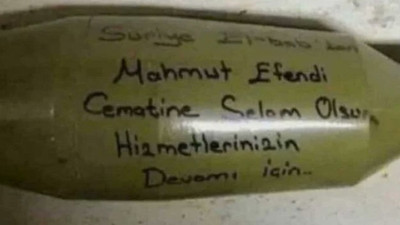 Suriye El-bab'tan
Mahmut Efendi
Cematine Selam Olsun
Hizmetlerinizin
Devamı için..